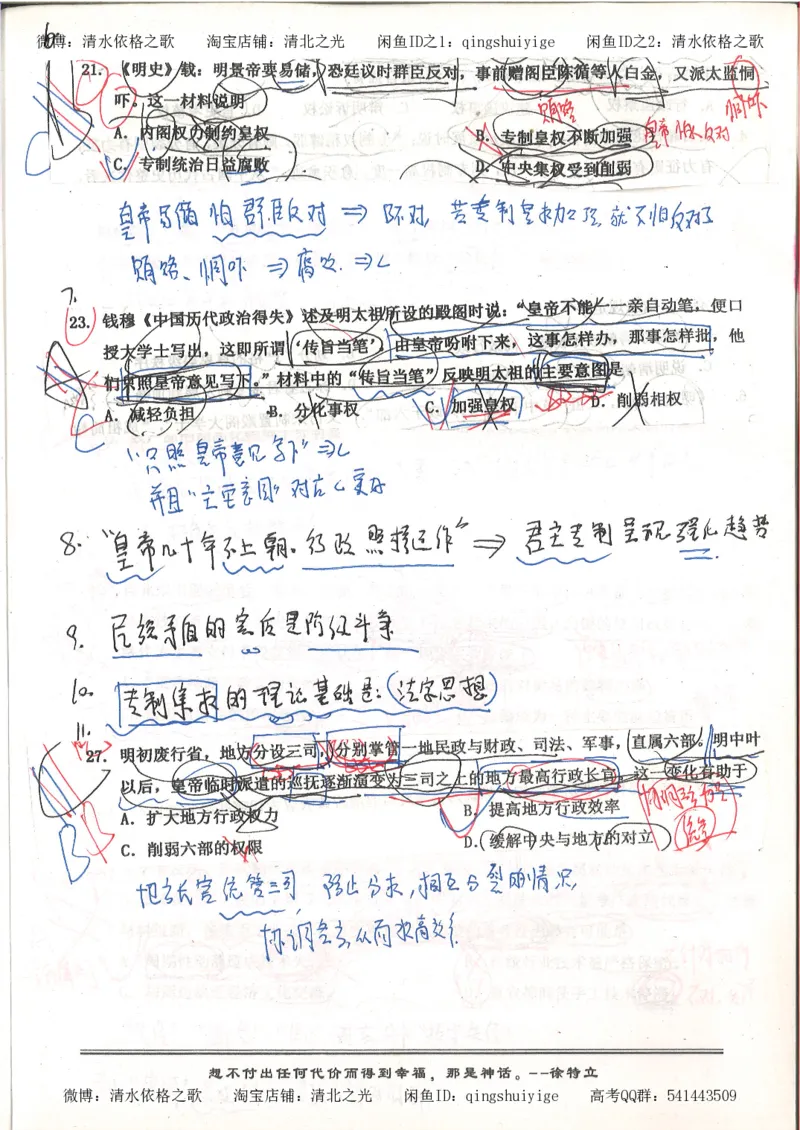 微博：清水依格之歌 淘宝店铺：清北之光 闲鱼ID之1：qingshuiyige 闲鱼ID之2：清水依格之歌
6
21. 《明史》载：明景帝要易储，恐廷议时群臣反对，事前赠阁臣陈循等人白金，又派太监恫
吓。这一材料说明
贿赂 恫吓
A. 内阁权力制约皇权 B. 专制皇权不断加强 皇帝怕反对
C. 专制统治日益腐败 D. 中央集权受到削弱
C
皇帝易储怕群臣反对 ⇒ 陈对, 若专制皇权加强, 就不怕反对了
贿赂、恫吓 ⇒ 腐败. ⇒C
7.
23. 钱穆《中国历代政治得失》述及明太祖所设的殿阁时说：“皇帝不能一一亲自动笔，便口
授大学士写出，这即所谓‘传旨当笔’，由皇帝吩咐下来，这事怎样办，那事怎样批，他
们只照皇帝意见写下。”材料中的“传旨当笔”反映明太祖的主要意图是
A. 减轻负担 B. 分化事权 C. 加强皇权 D. 削弱相权
C
“只照皇帝意见写下” ⇒C
并且“主要意图”对应C更好
8. “皇帝几十年不上朝。行政照样运作” ⇒ 君主专制呈现强化趋势
9. 民族矛盾的实质是阶级斗争
10. 专制集权的理论基础是:（法家思想）
11.
27. 明初废行省，地方分设三司，分别掌管一地民政与财政、司法、军事，直属六部。明中叶
以后，皇帝临时派遣的巡抚逐渐演变为三司之上的地方最高行政长官。这一变化有助于
A. 扩大地方行政权力 B. 提高地方行政效率
C. 削弱六部的权限 D. 缓解中央与地方的对立
B
地方长官统管三司, 防止分权,相互分裂的情况,
协调各方,从而提高效率
想不付出任何代价而得到幸福，那是神话。--徐特立
微博：清水依格之歌 淘宝店铺：清北之光 闲鱼ID：qingshuiyige 高考QQ群：541443509